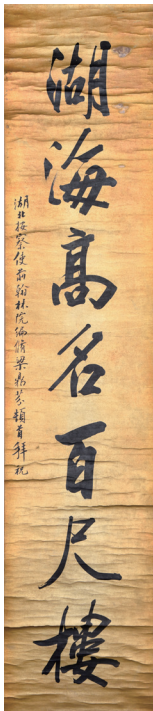 湖海高名百尺樓
湖北按察使前翰林院編脩梁鼎芬頓首拜祝